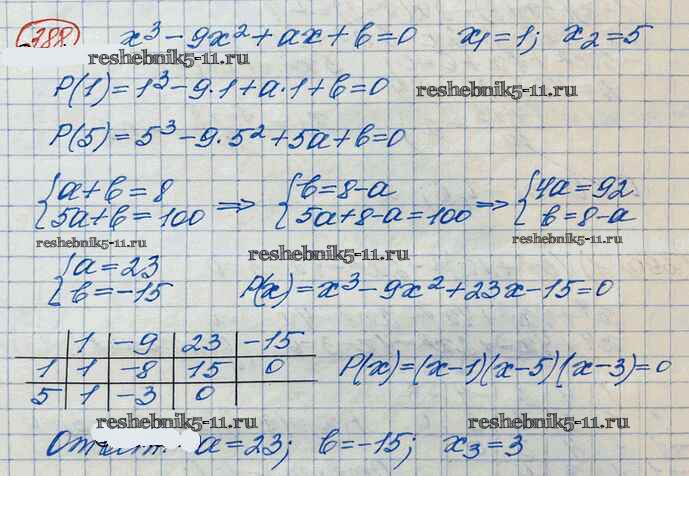 788 x³ - 9x² + ax + b = 0 x₁ = 1; x₂ = 5
reshebnik5-11.ru
P(1) = 1³ - 9·1 + a·1 + b = 0
reshebnik5-11.ru
P(5) = 5³ - 9·5² + 5a + b = 0
{a + b = 8 ⇒ {b = 8 - a ⇒ {4a = 92
5a + b = 100 5a + 8 - a = 100 b = 8 - a
reshebnik5-11.ru reshebnik5-11.ru reshebnik5-11.ru
{a = 23
b = -15 P(x) = x³ - 9x² + 23x - 15 = 0
1 -9 23 -15
1 1 -8 15 0 P(x) = (x-1)(x-5)(x-3) = 0
5 1 -3 0
reshebnik5-11.ru reshebnik5-11.ru
a = 23; b = -15; x₃ = 3